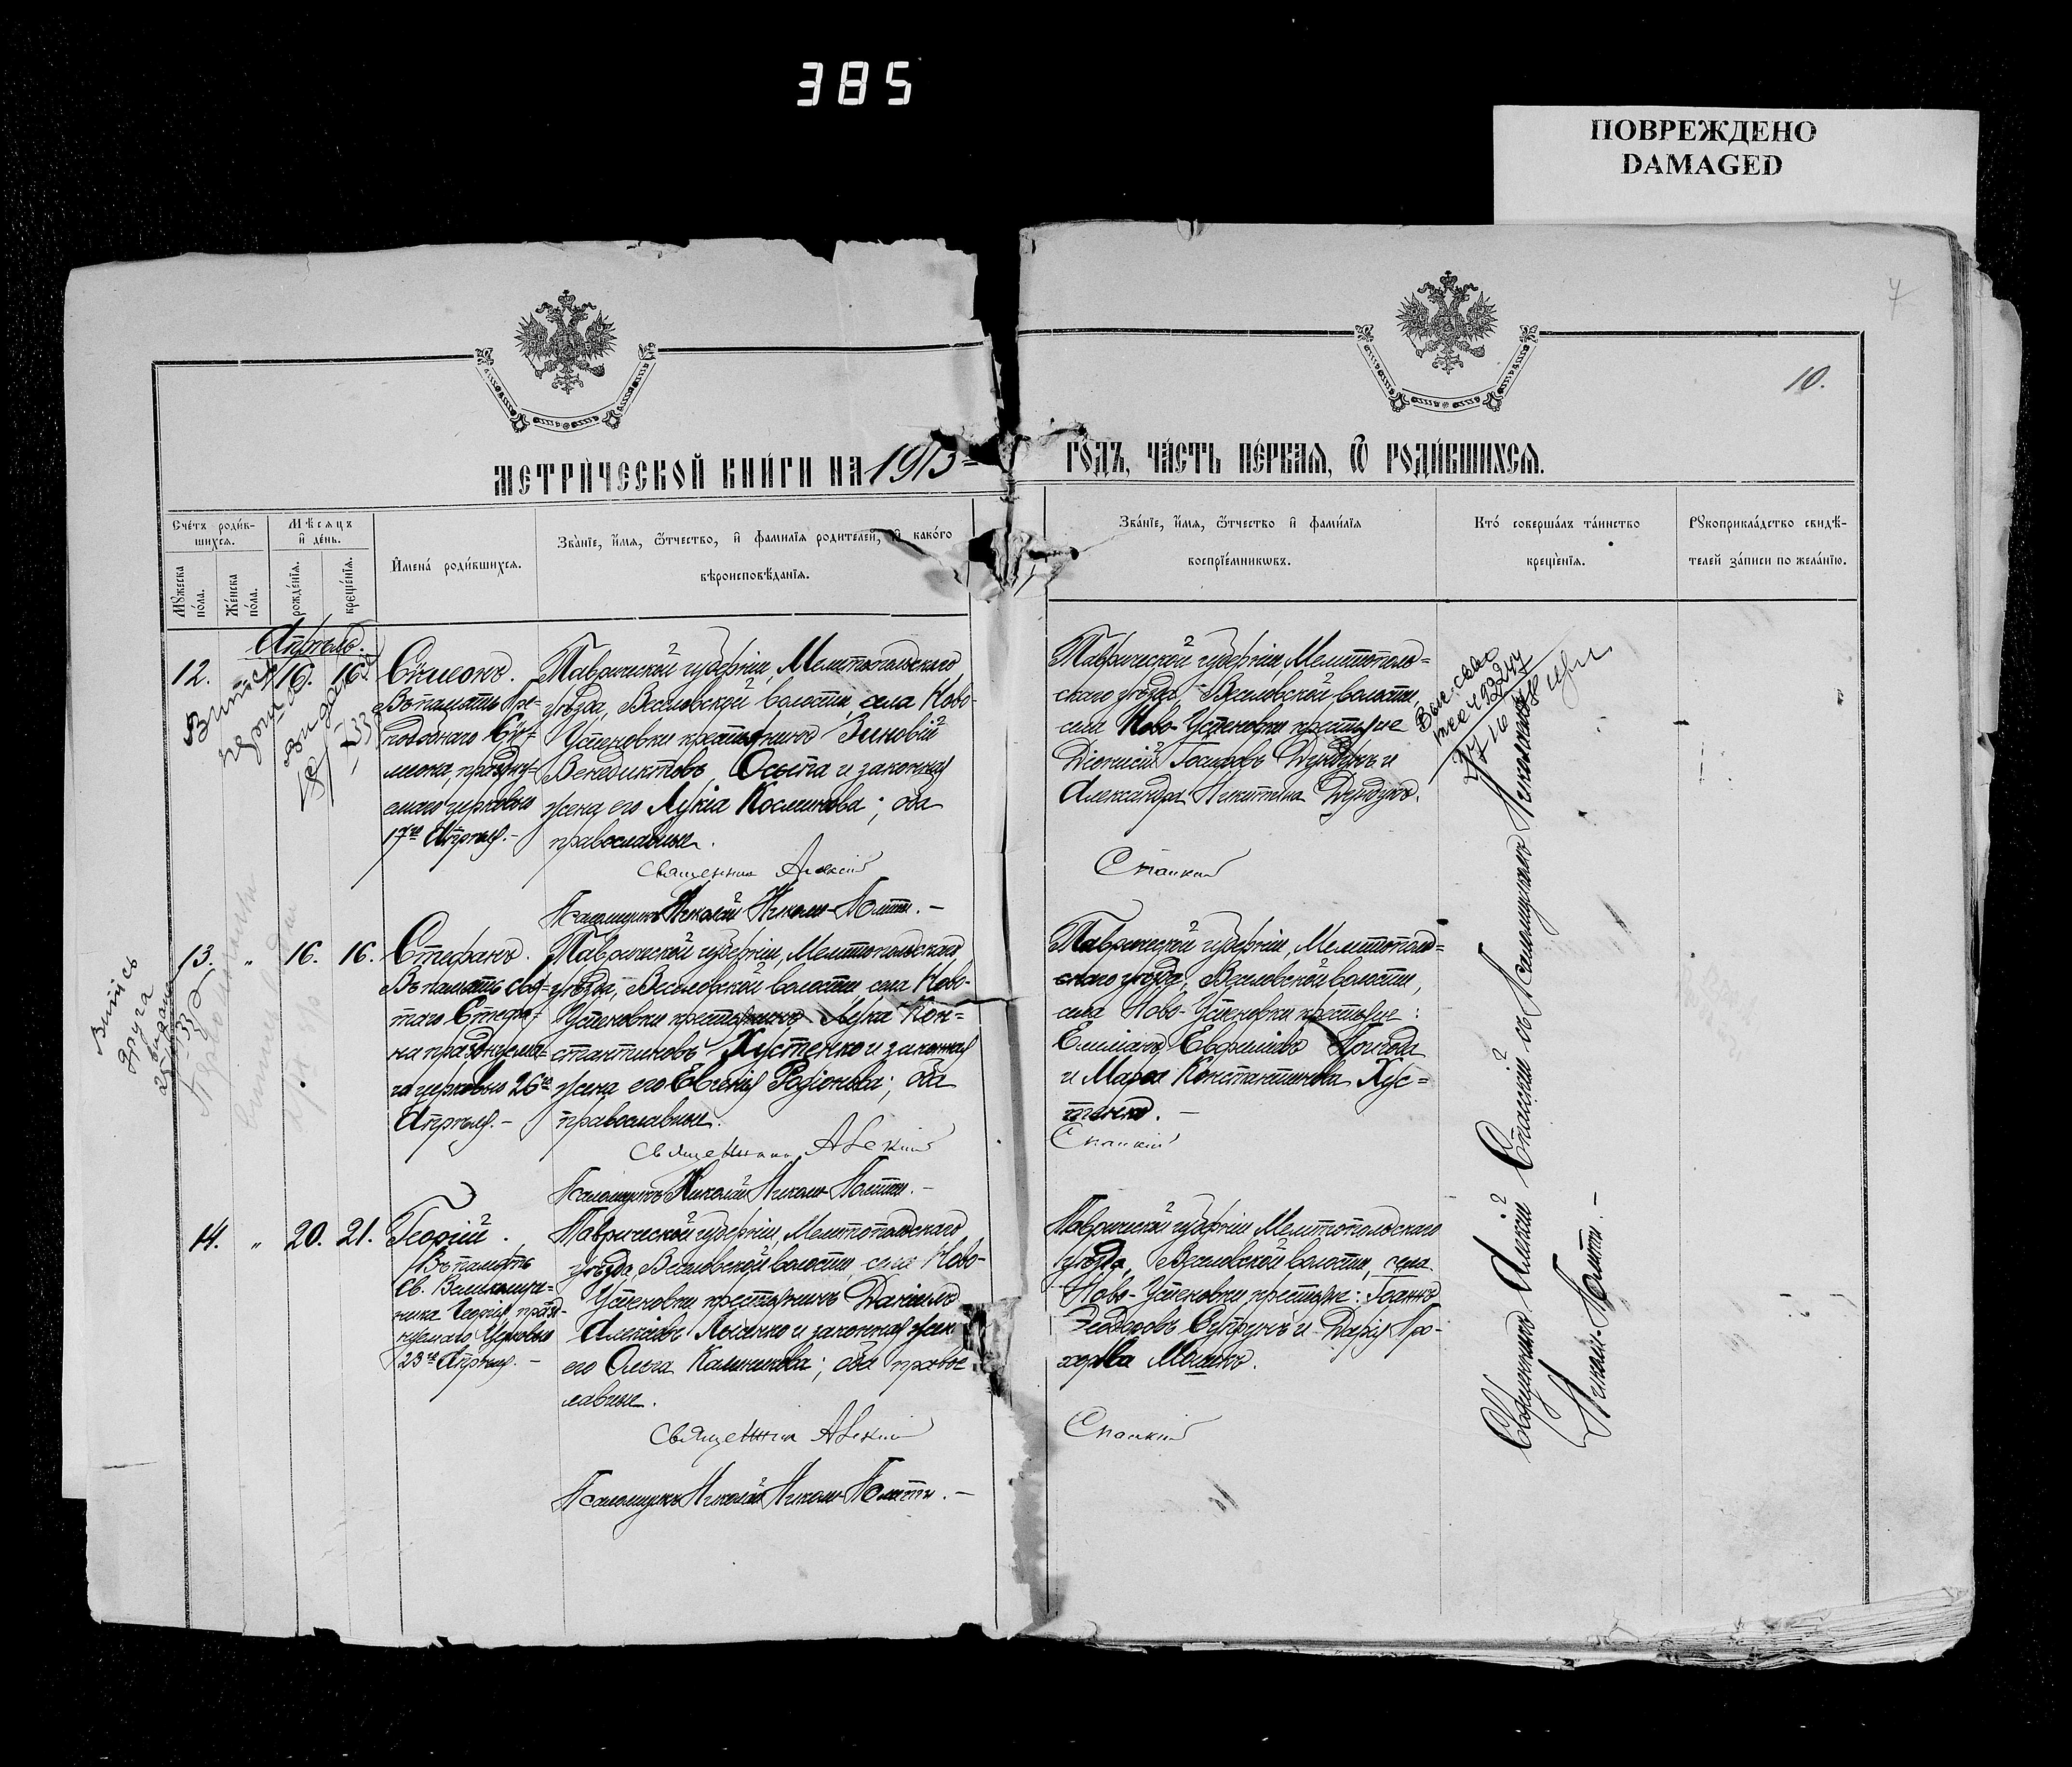 385
ПОВРЕЖДЕНО
DAMAGED
7
10.
МЕТРИ́ЧЕСКОЙ КНИ́ГИ НА 1913 ГО́ДЪ, ЧА́СТЬ ПЕ́РВАЯ, Ѿ РОДИ́ВШИХСЯ.
Сче́тъ роди́в-
шихся.
Мѣсяцъ
и҆ де́нь.
Му́жеска
по́ла.
Же́нска
по́ла.
рожде́нїя.
креще́нїя.
И҆мена́ роди́вшихся.
Зва́нїе, и҆́мя, ѻ҆́тчество, и҆ фамилїя родителей, и҆ како́го
вѣроисповѣ́данїя.
Зва́нїе, и҆́мя, ѻ҆́тчество и҆ фами́лїя
воспрїе́мниковъ.
Кто́ соверша́лъ та́инство
креще́нїя.
Рꙋкоприкла́дство свидѣ́-
телей за́писи по жела́нїю.
Апрѣль.
12. 16. 16.
Сѵмеонъ.
Въ память Пре-
подобнаго Сѵ-
меона, праздну-
емаго церковью
17го Апрѣля.-
Таврической губерніи, Мелитопольскаго
уѣзда, Веселовской волости, села Ново-
Успеновки крестьянинъ Зиновій
Венедиктовъ Осьпа и законная
жена его Лукія Косминова; оба
православные.
Священник Алексій
Псаломщикъ Николай Николаи-Политти.-
Таврической губерніи, Мелитополь=
скаго уѣзда, Веселовской волости,
села Ново-Успеновки крестьяне
Діонисій Іосифовъ Дундукъ и
Александра Никитина Дундукъ.
Спаский
13. " 16. 16.
Стефанъ.
Въ память Свя-
таго Стефа-
на празднуема-
го церковью 26го
Апрѣля.-
Таврической губерніи, Мелитопольскаго
уѣзда, Веселовской волости села Ново-
Успеновки крестьянинъ Лука Кон=
стантиновъ Хустенко и законная
жена его Евгенія Родіонова; оба
православные.
Священник Алексий
Псаломщикъ Николай Николаи-Политти.-
Таврической губерніи, Мелитополь=
скаго уѣзда, Веселовской волости,
села Ново-Успеновки крестьяне:
Емиліанъ Евфиміевъ Пригода
и Марѳа Константинова Хус=
тенко.-
Спаский
14. " 20. 21.
Георгій.
Въ память
Св. Великому-
ника Георгія празд-
нуемаго Церковью
23го Апрѣля.-
Таврической губерніи, Мелитопольскаго
уѣзда, Веселовской волости, села Ново-
Успеновки крестьянинъ Даніилъ
Алексіевъ Лысенко и законная жена
его Ольга Калиникова; оба правос
лавные.
Священник Алексий
Псаломщикъ Николай Николаи-Политти.-
Таврической губерніи Мелитопольскаго
уѣзда, Веселовской волости, села
Ново-Успеновки крестьяне: Іоаннъ
Ѳеодоровъ Супрунъ и Дарія Про-
хорова
Спаский
Священникъ Алексій Спасскій съ Псаломщикомъ Николаемъ
Николаи-Политти.-
Витись
друга
видана